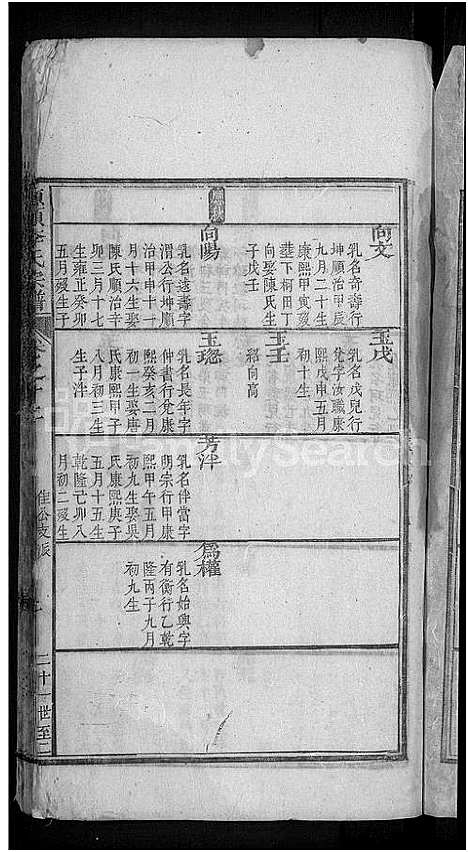 向文
乳名奇壽行
坤順治甲辰
九月二十生
康熙甲寅歿
塟下柯田丁
向娶陳氏生
子戊壬
向陽
乳名遠壽字
渭公行坤順
治甲申十一
月十六生娶
陳氏順治辛
卯三月十七
生雍正癸卯
五月歿生子
玉戊
乳名戊兒行
兌字汝職康
熙戊申五月
初十生
玉壬
紹向高
玉琩
乳名長年字
仲書行兌康
熙癸亥二月
初一生娶唐
氏康熙甲子
八月初三生
生子泮
芳泮
乳名伴當字
明宗行甲康
熙甲午五月
初九生娶吳
氏康熙庚子
五月十五生
乾隆己卯八
月初二歿生
為權
乳名始興字
有衡行乙乾
隆丙子九月
初九生
李氏宗譜
卷之十
隹公支派
二十一世至二